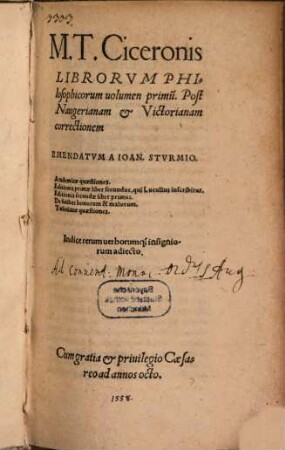 M.T. Ciceronis
LIBRORVM PHI-
losophicorum uolumen primū. Post
Naugerianam & Victorianam
correctionem
EMENDATVM A IOAN. STVRMIO.
Academicæ quæstiones.
Editionis primæ liber secundus, qui Lucullus inscribitur.
Editionis secundæ liber primus.
De finibus bonorum & malorum.
Tusculanæ quæstiones.
Indice rerum uerborumq; insignio-
rum adiecto.
Ad Convent. Monac. Ord. S Aug
Bayerische
Staatsbibliothek
München
Cum gratia & priuilegio Cæsa-
reo ad annos octo.
1558.